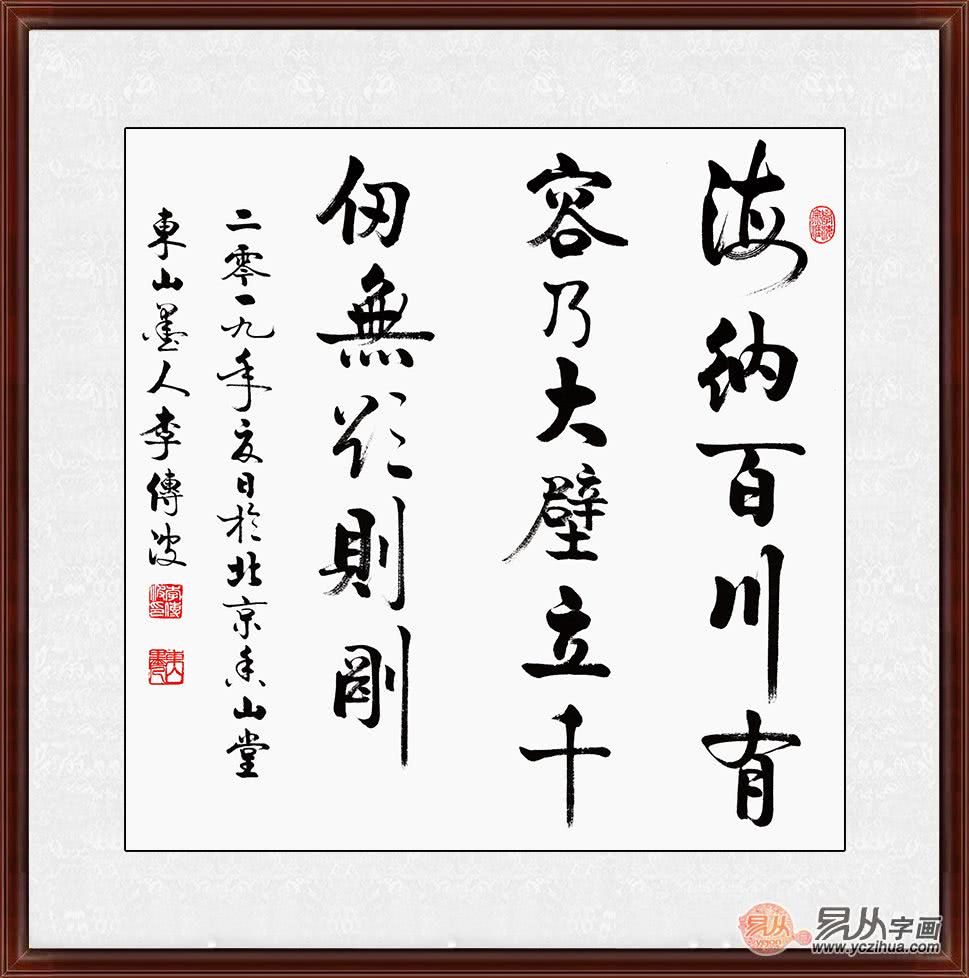 海納百川有
容乃大壁立千
仞無欲則剛
二零一九年夏日於北京香山堂
東山墨人李傳波
易从字画
www.yczihua.com